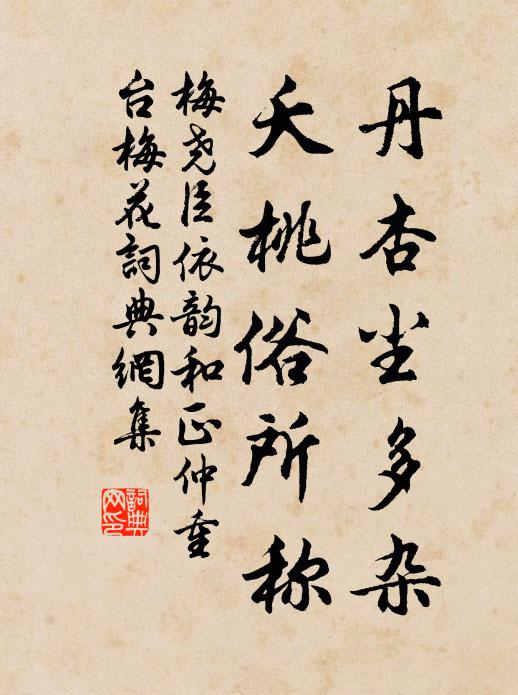 丹杏尘多杂
夭桃俗所称
梅尧臣依韵和正仲重
台梅花詞典網集
詞典
网印